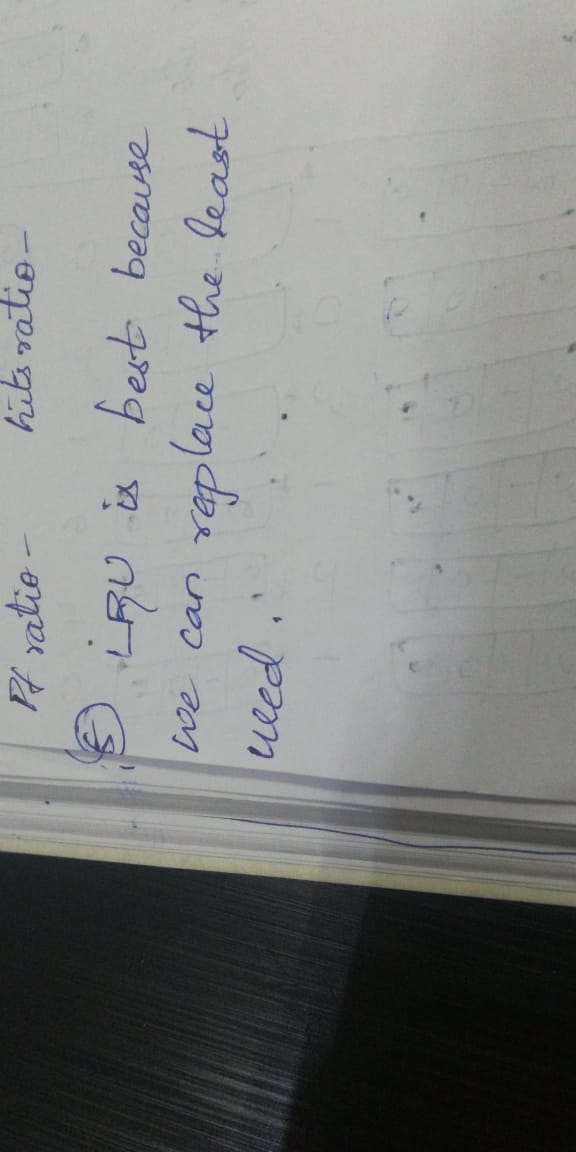 Pf ratio - hits ratio -
(5) LRU is best because
we can replace the least
used.